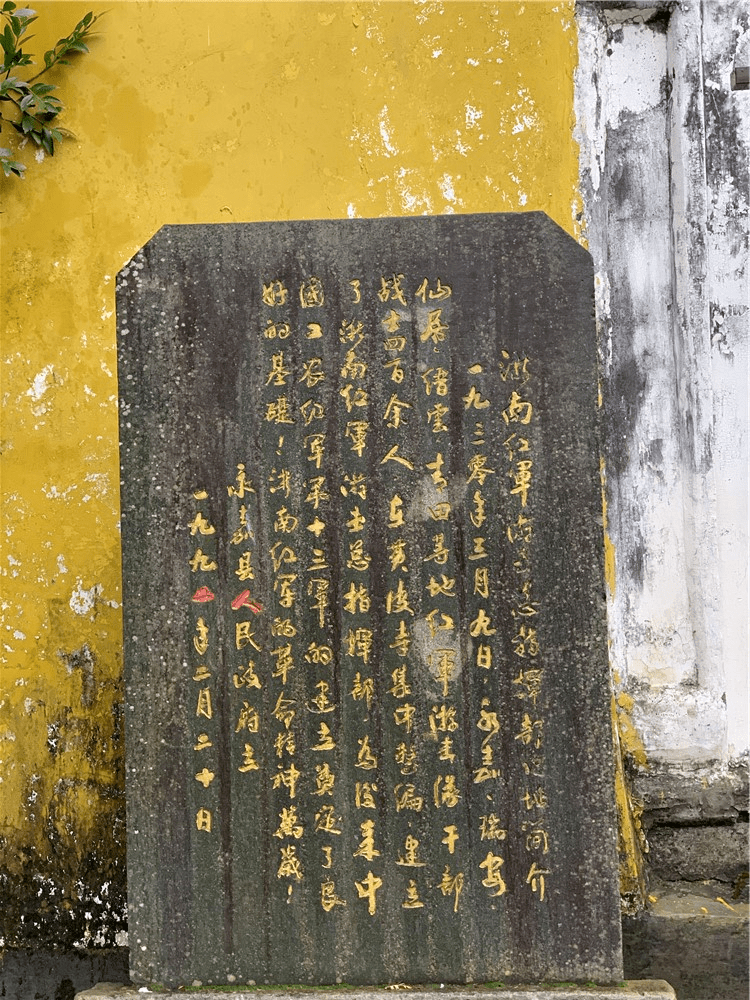 浙南红军游击总指挥部旧址简介
一九三零年三月九日永嘉、瑞安
仙居、缙云青田等地红军游击队干部
战士四百余人在黄皮寺集中整编建立
了浙南红军游击总指挥部，为后来中
國工农红军第十三軍的建立奠定了良
好的基础！浙南红军的革命精神萬歲！
永嘉县人民政府立
一九九一年二月二十日